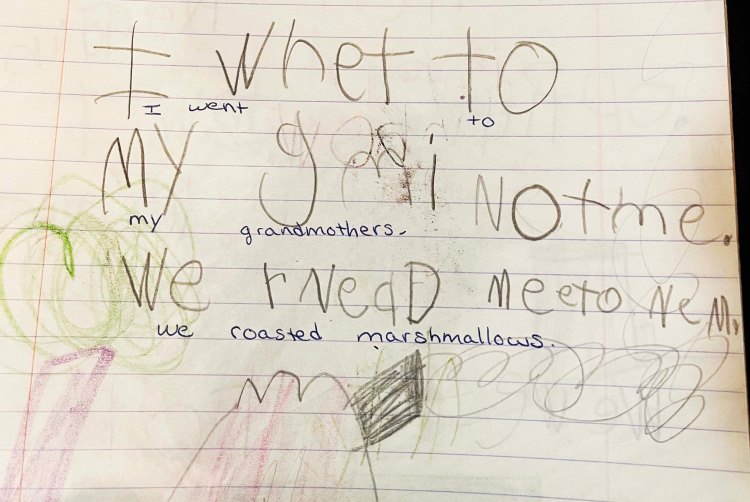 I whet to
I went to
my gari Notme.
my grandmothers.
We rNeaD meeto NeM,
we roasted marshmallows.